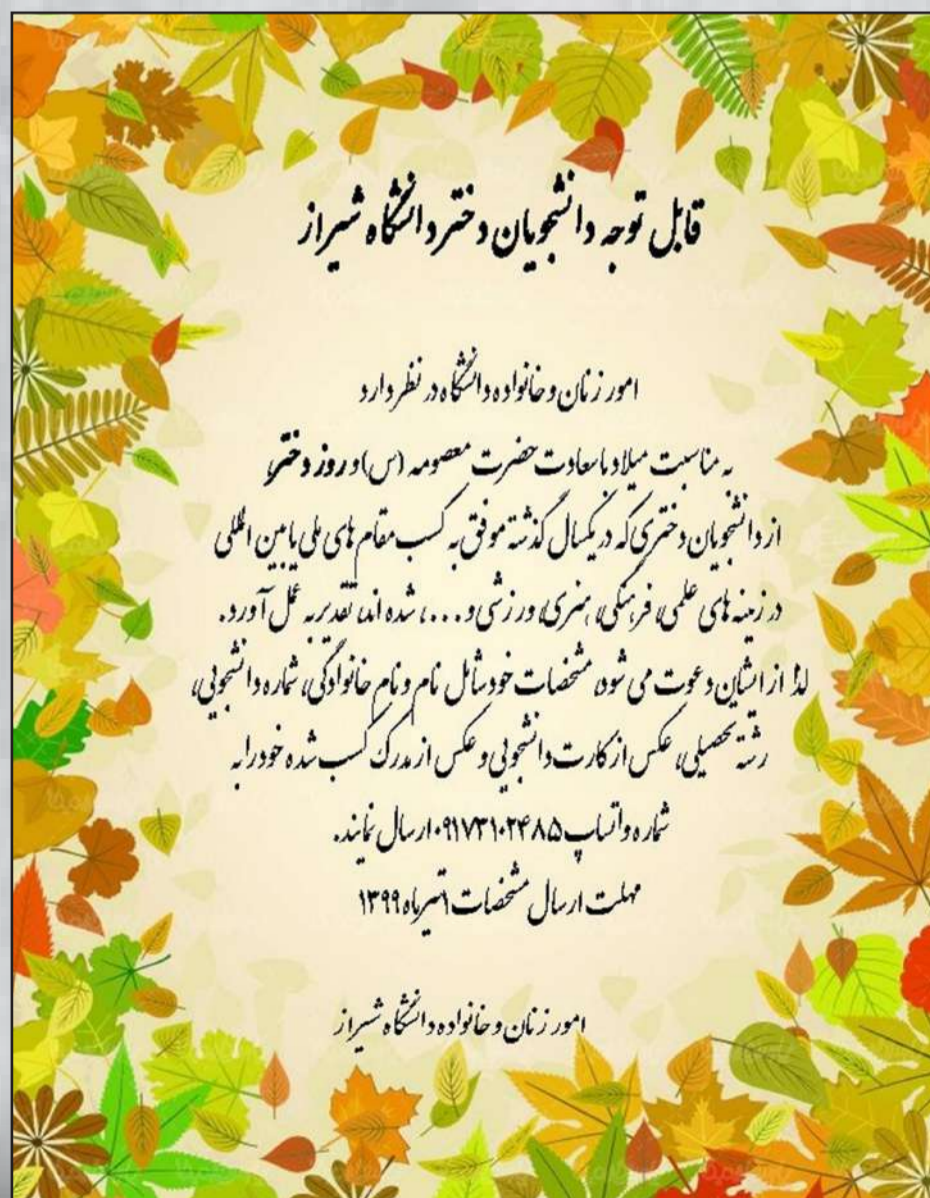 قابل توجه دانشجویان دختر دانشگاه شیراز
امور زنان و خانواده دانشگاه در نظر دارد
به مناسبت میلاد باسعادت حضرت معصومه (س) و روز دختر،
از دانشجویان دختری که در یکسال گذشته موفق به کسب مقام های ملی یا بین المللی
در زمینه های علمی، فرهنگی، هنری، ورزشی و ...، شده اند، تقدیر به عمل آورد.
لذا از ایشان دعوت می شود، مشخصات خود شامل نام و نام خانوادگی، شماره دانشجویی،
رشته تحصیلی، عکس از کارت دانشجویی و عکس از مدرک کسب شده خود را به
شماره واتساپ ۰۹۱۷۳۱۰۲۴۸۵ ارسال نمایند.
مهلت ارسال مشخصات ۱ تیرماه ۱۳۹۹
امور زنان و خانواده دانشگاه شیراز